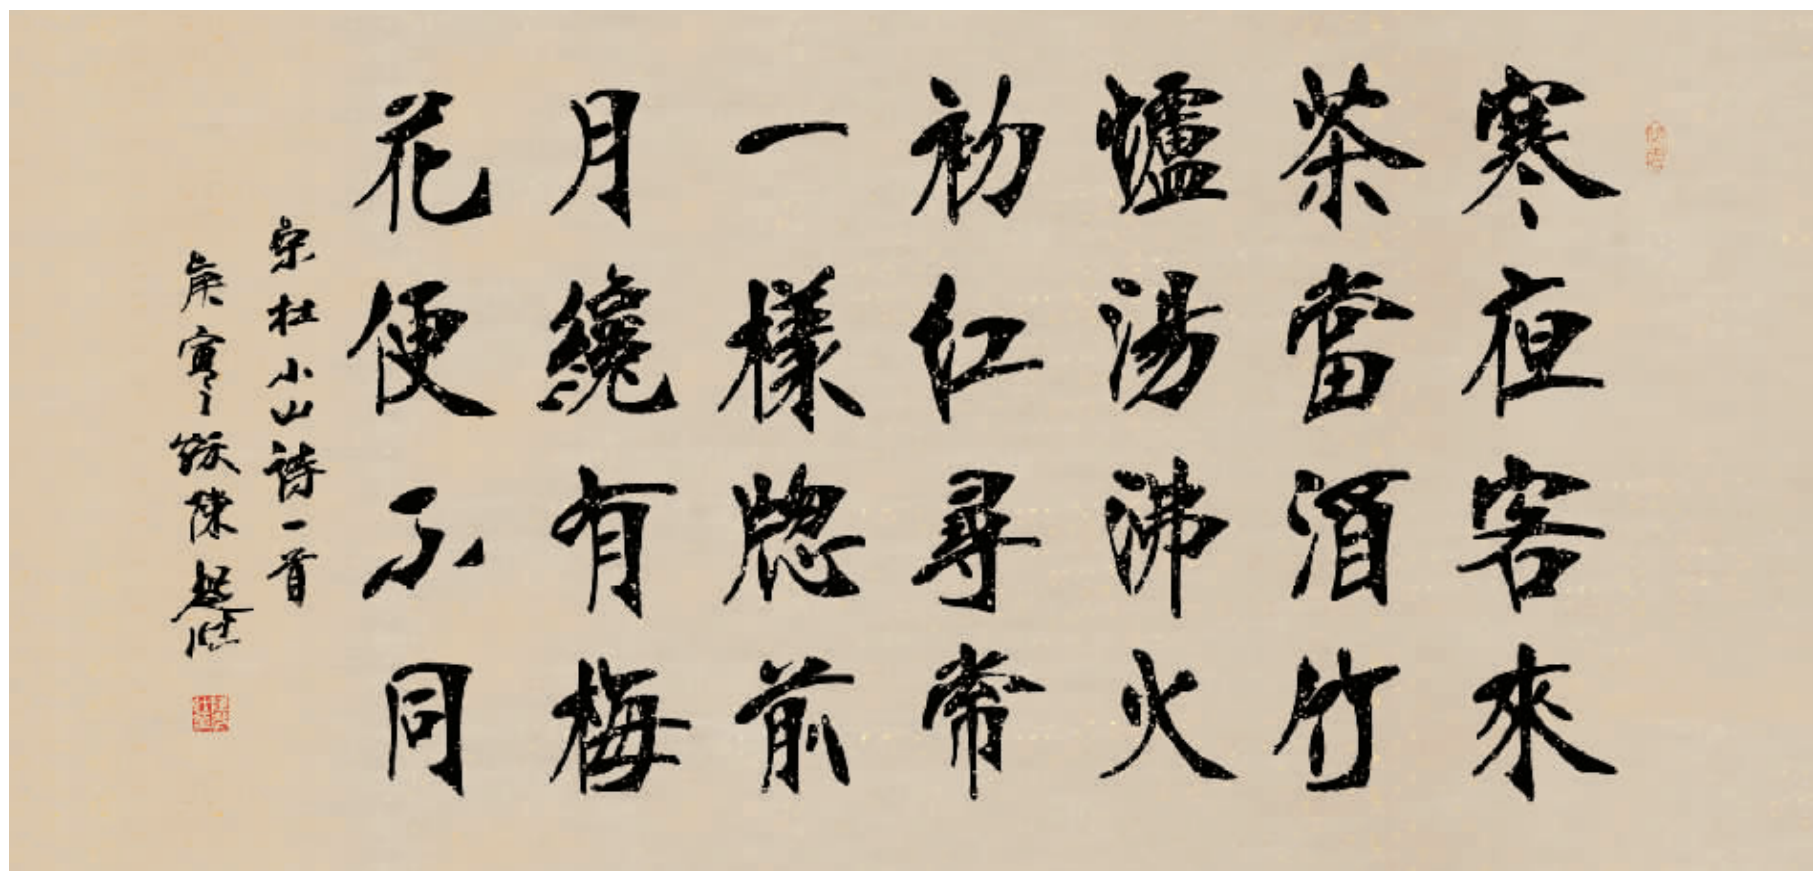 寒夜客來
茶當酒竹
爐湯沸火
初紅尋常
一樣窗前
月纔有梅
花便不同
宋杜小山詩一首
庚寅
陳